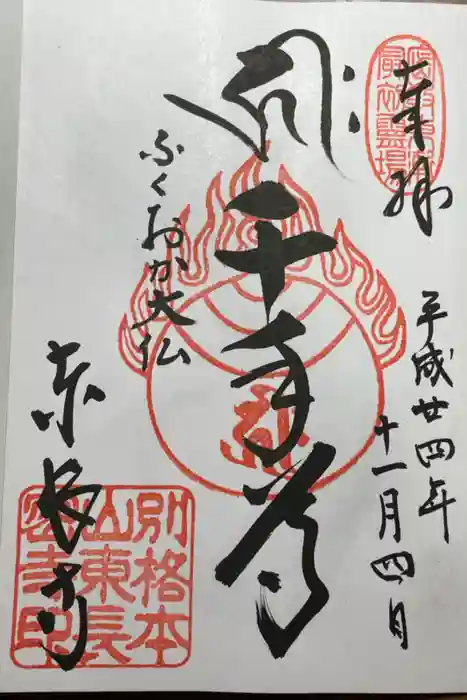 奉拝
平成廿四年
十一月四日
千手尊
ふくおか大仏
東長寺
別格本
山東長
密寺印